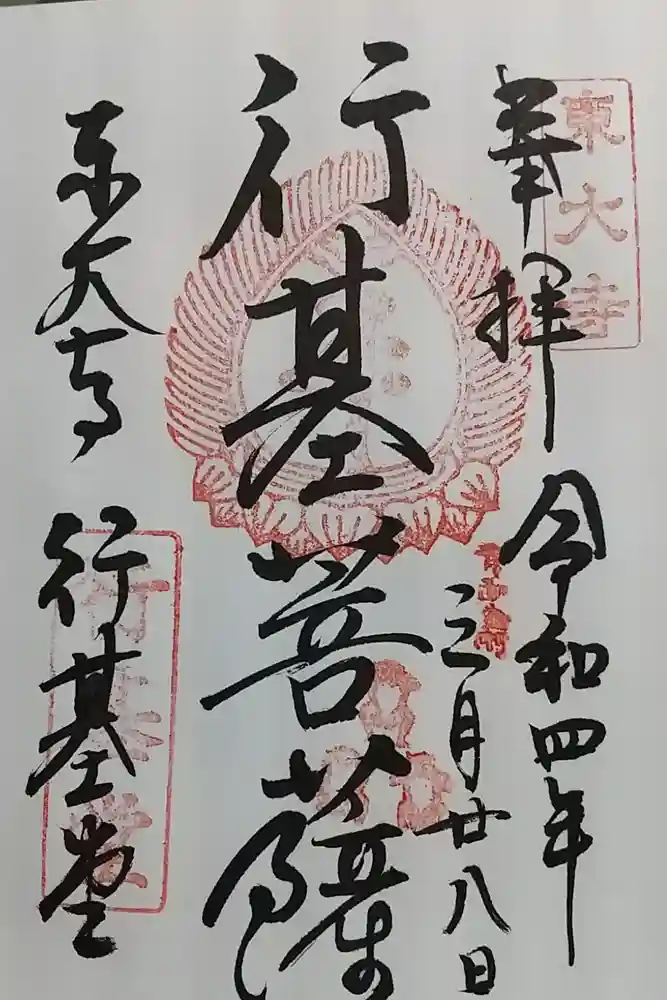 奉拝
令和四年
三月廿八日
行基菩薩
東大寺
行基堂
東大寺
行基堂